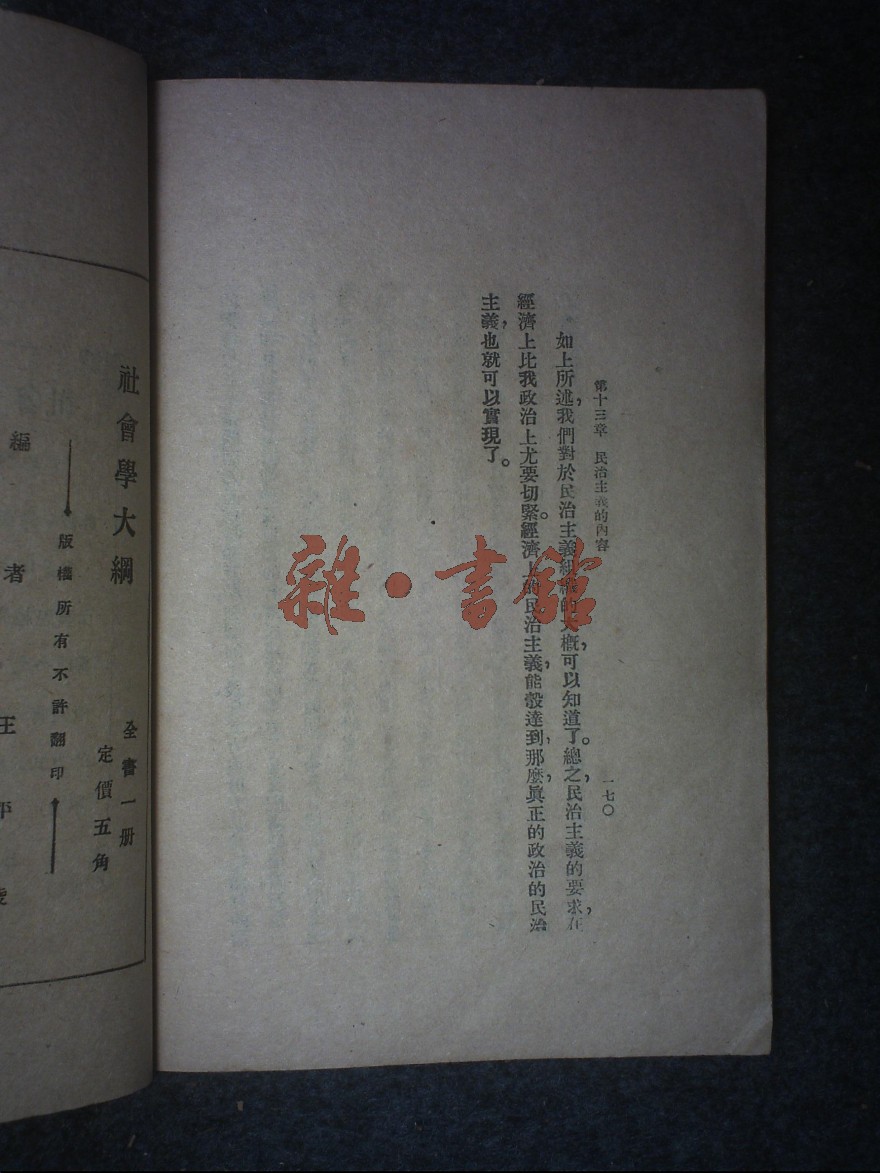 第十三章 民治主義的內容
一七〇
如上所述，我們對於民治主義組織的大概，可以知道了。總之，民治主義的要求，在
經濟上比我政治上尤要切緊。經濟上的民治主義，能彀達到，那麼，眞正的政治的民治
主義，也就可以實現了。
雜·書館
社會學大綱
全書一册
定價五角
版權所有不許翻印
編者王平